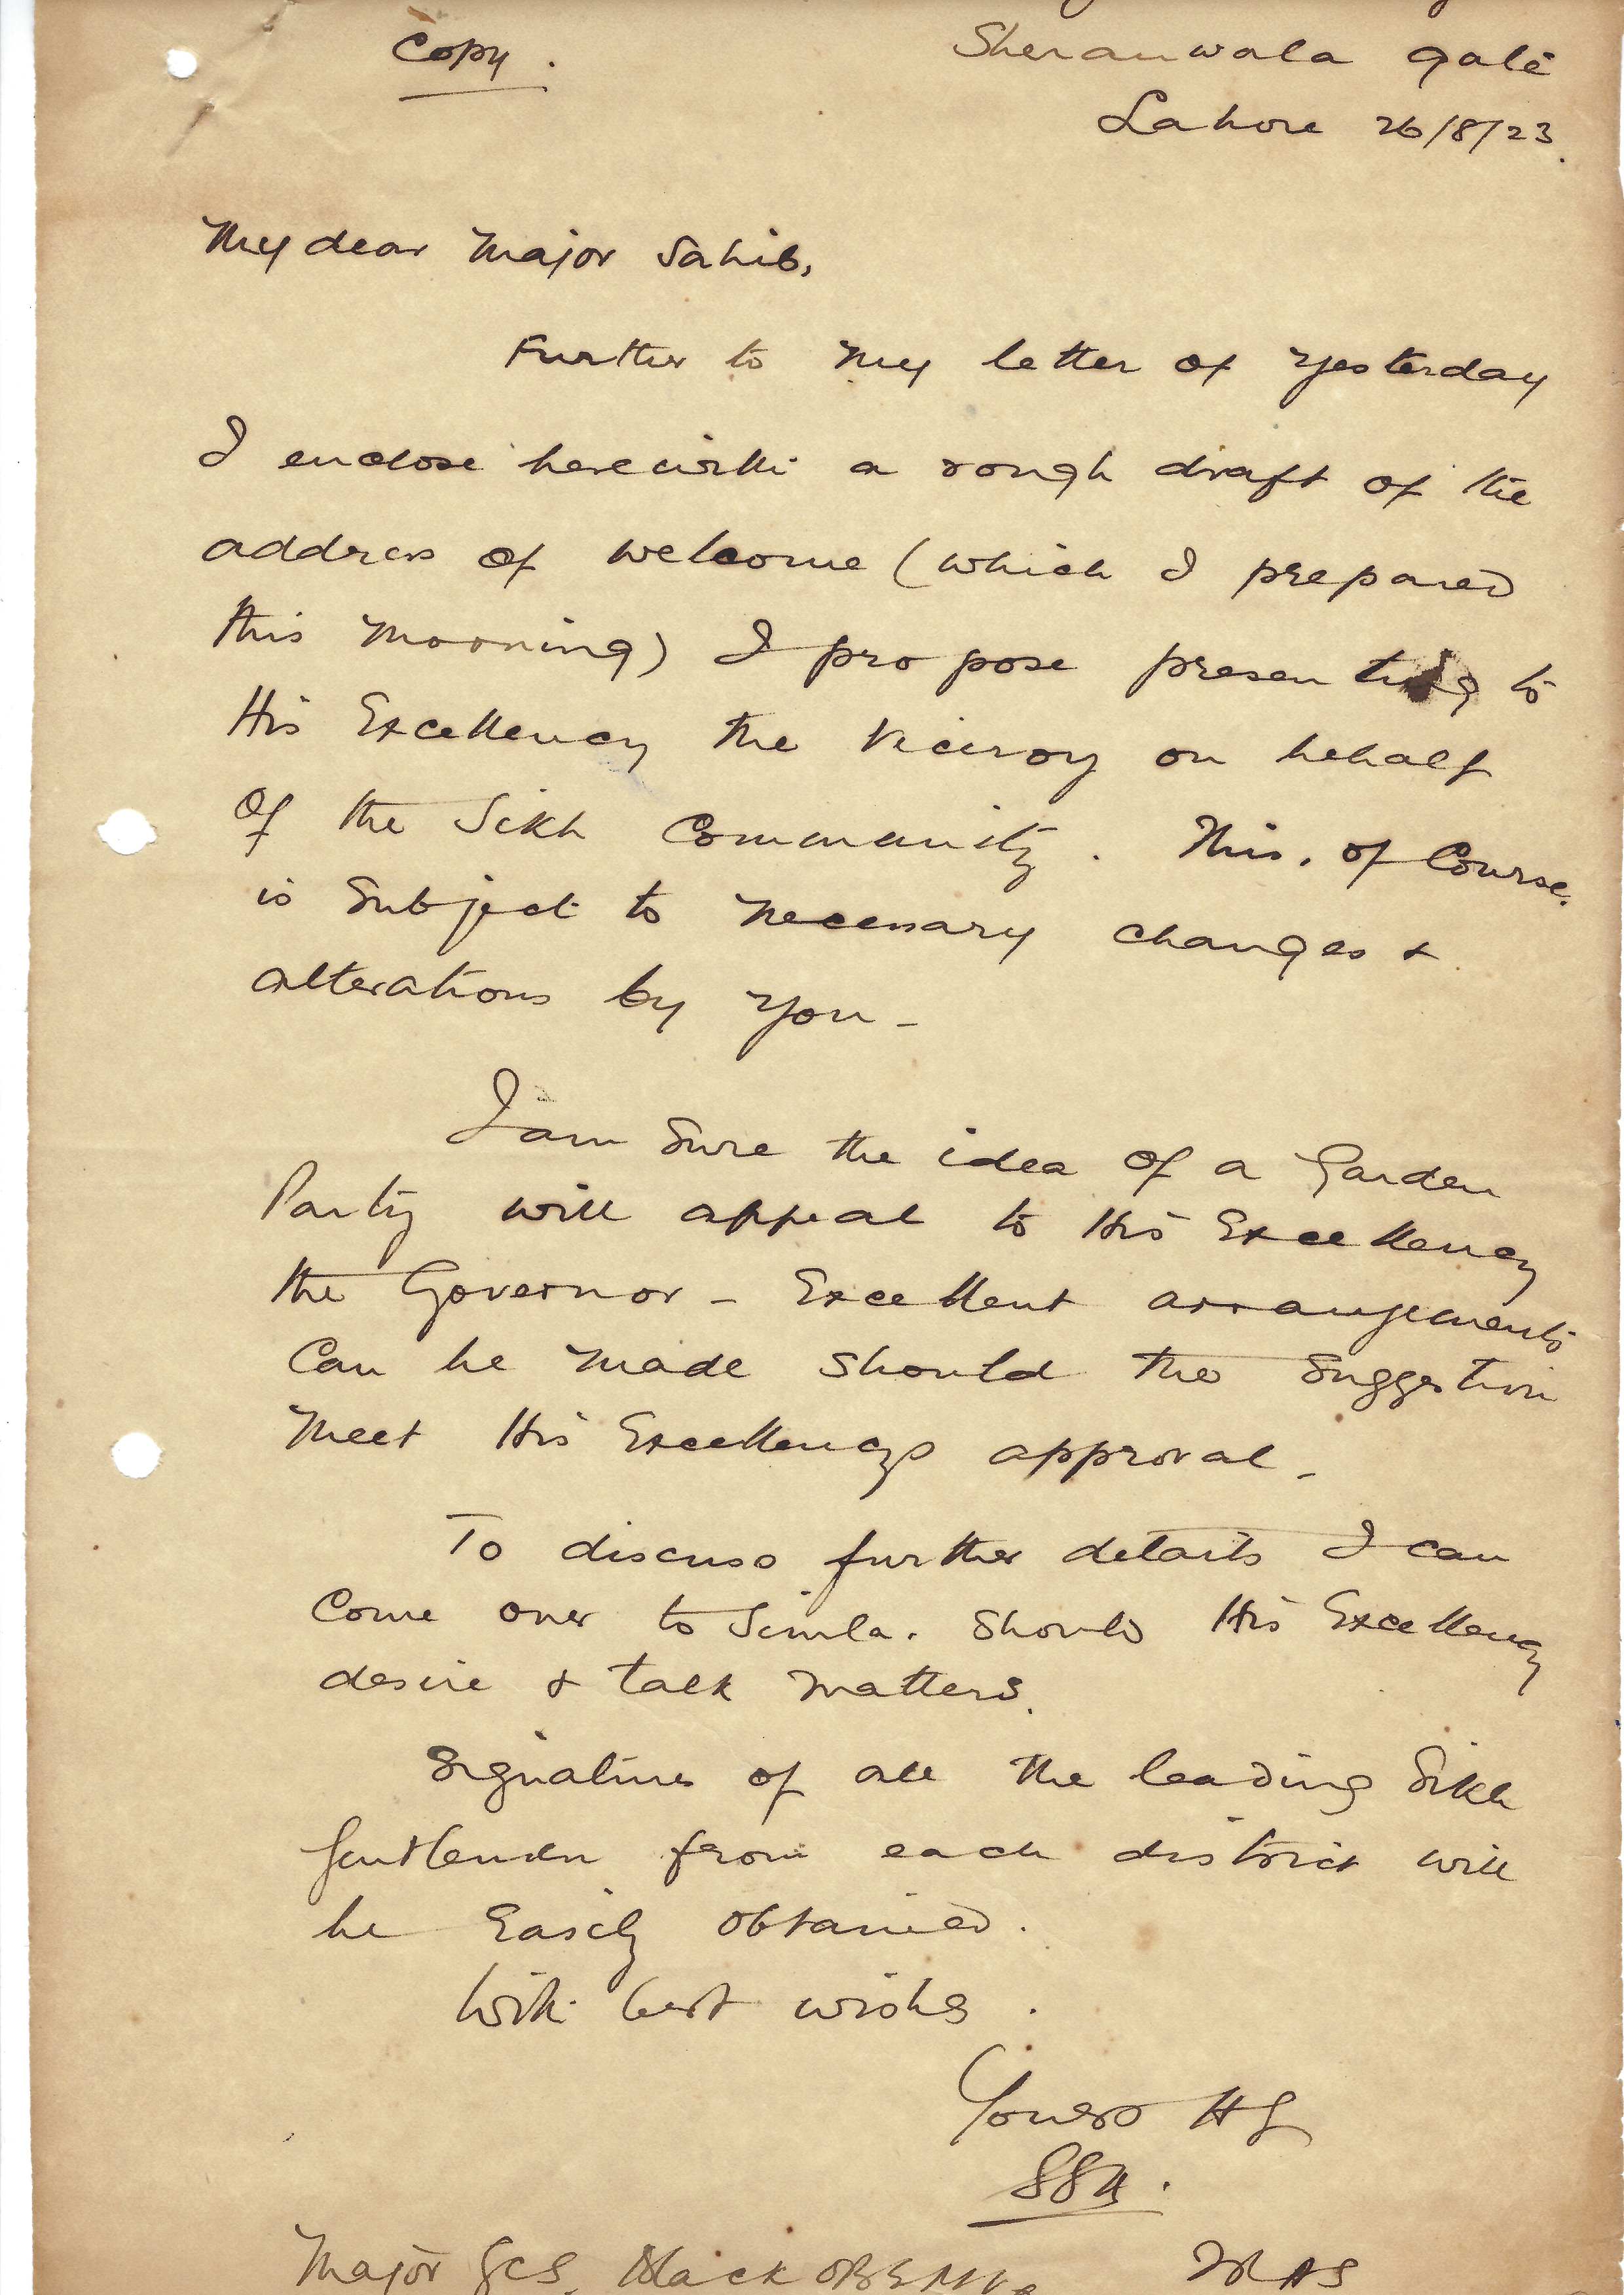 Copy.
Sheranwala gate
Lahore 26/8/23.
My dear Major Sahib,
Further to my letter of yesterday
I enclose herewith a rough draft of the
address of welcome (which I prepared
this morning) I propose presenting to
His Excellency the Viceroy on behalf
of the Sikh Community. This, of Course,
is Subject to necessary changes &
alterations by you -
I am Sure the idea of a Garden
Party will appeal to His Excellency
the Governor - Excellent arrangements
Can be made should the Suggestion
meet His Excellencys approval -
To discuss further details I can
Come over to Simla. Should His Excellency
desire & talk matters.
Signatures of all the leading Sikh
Gentlemen from each district will
be Easily obtained.
With best wishes.
Yours
Major Black OBE